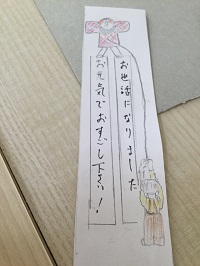 お世話になりました
お元気でおすごし下さい!